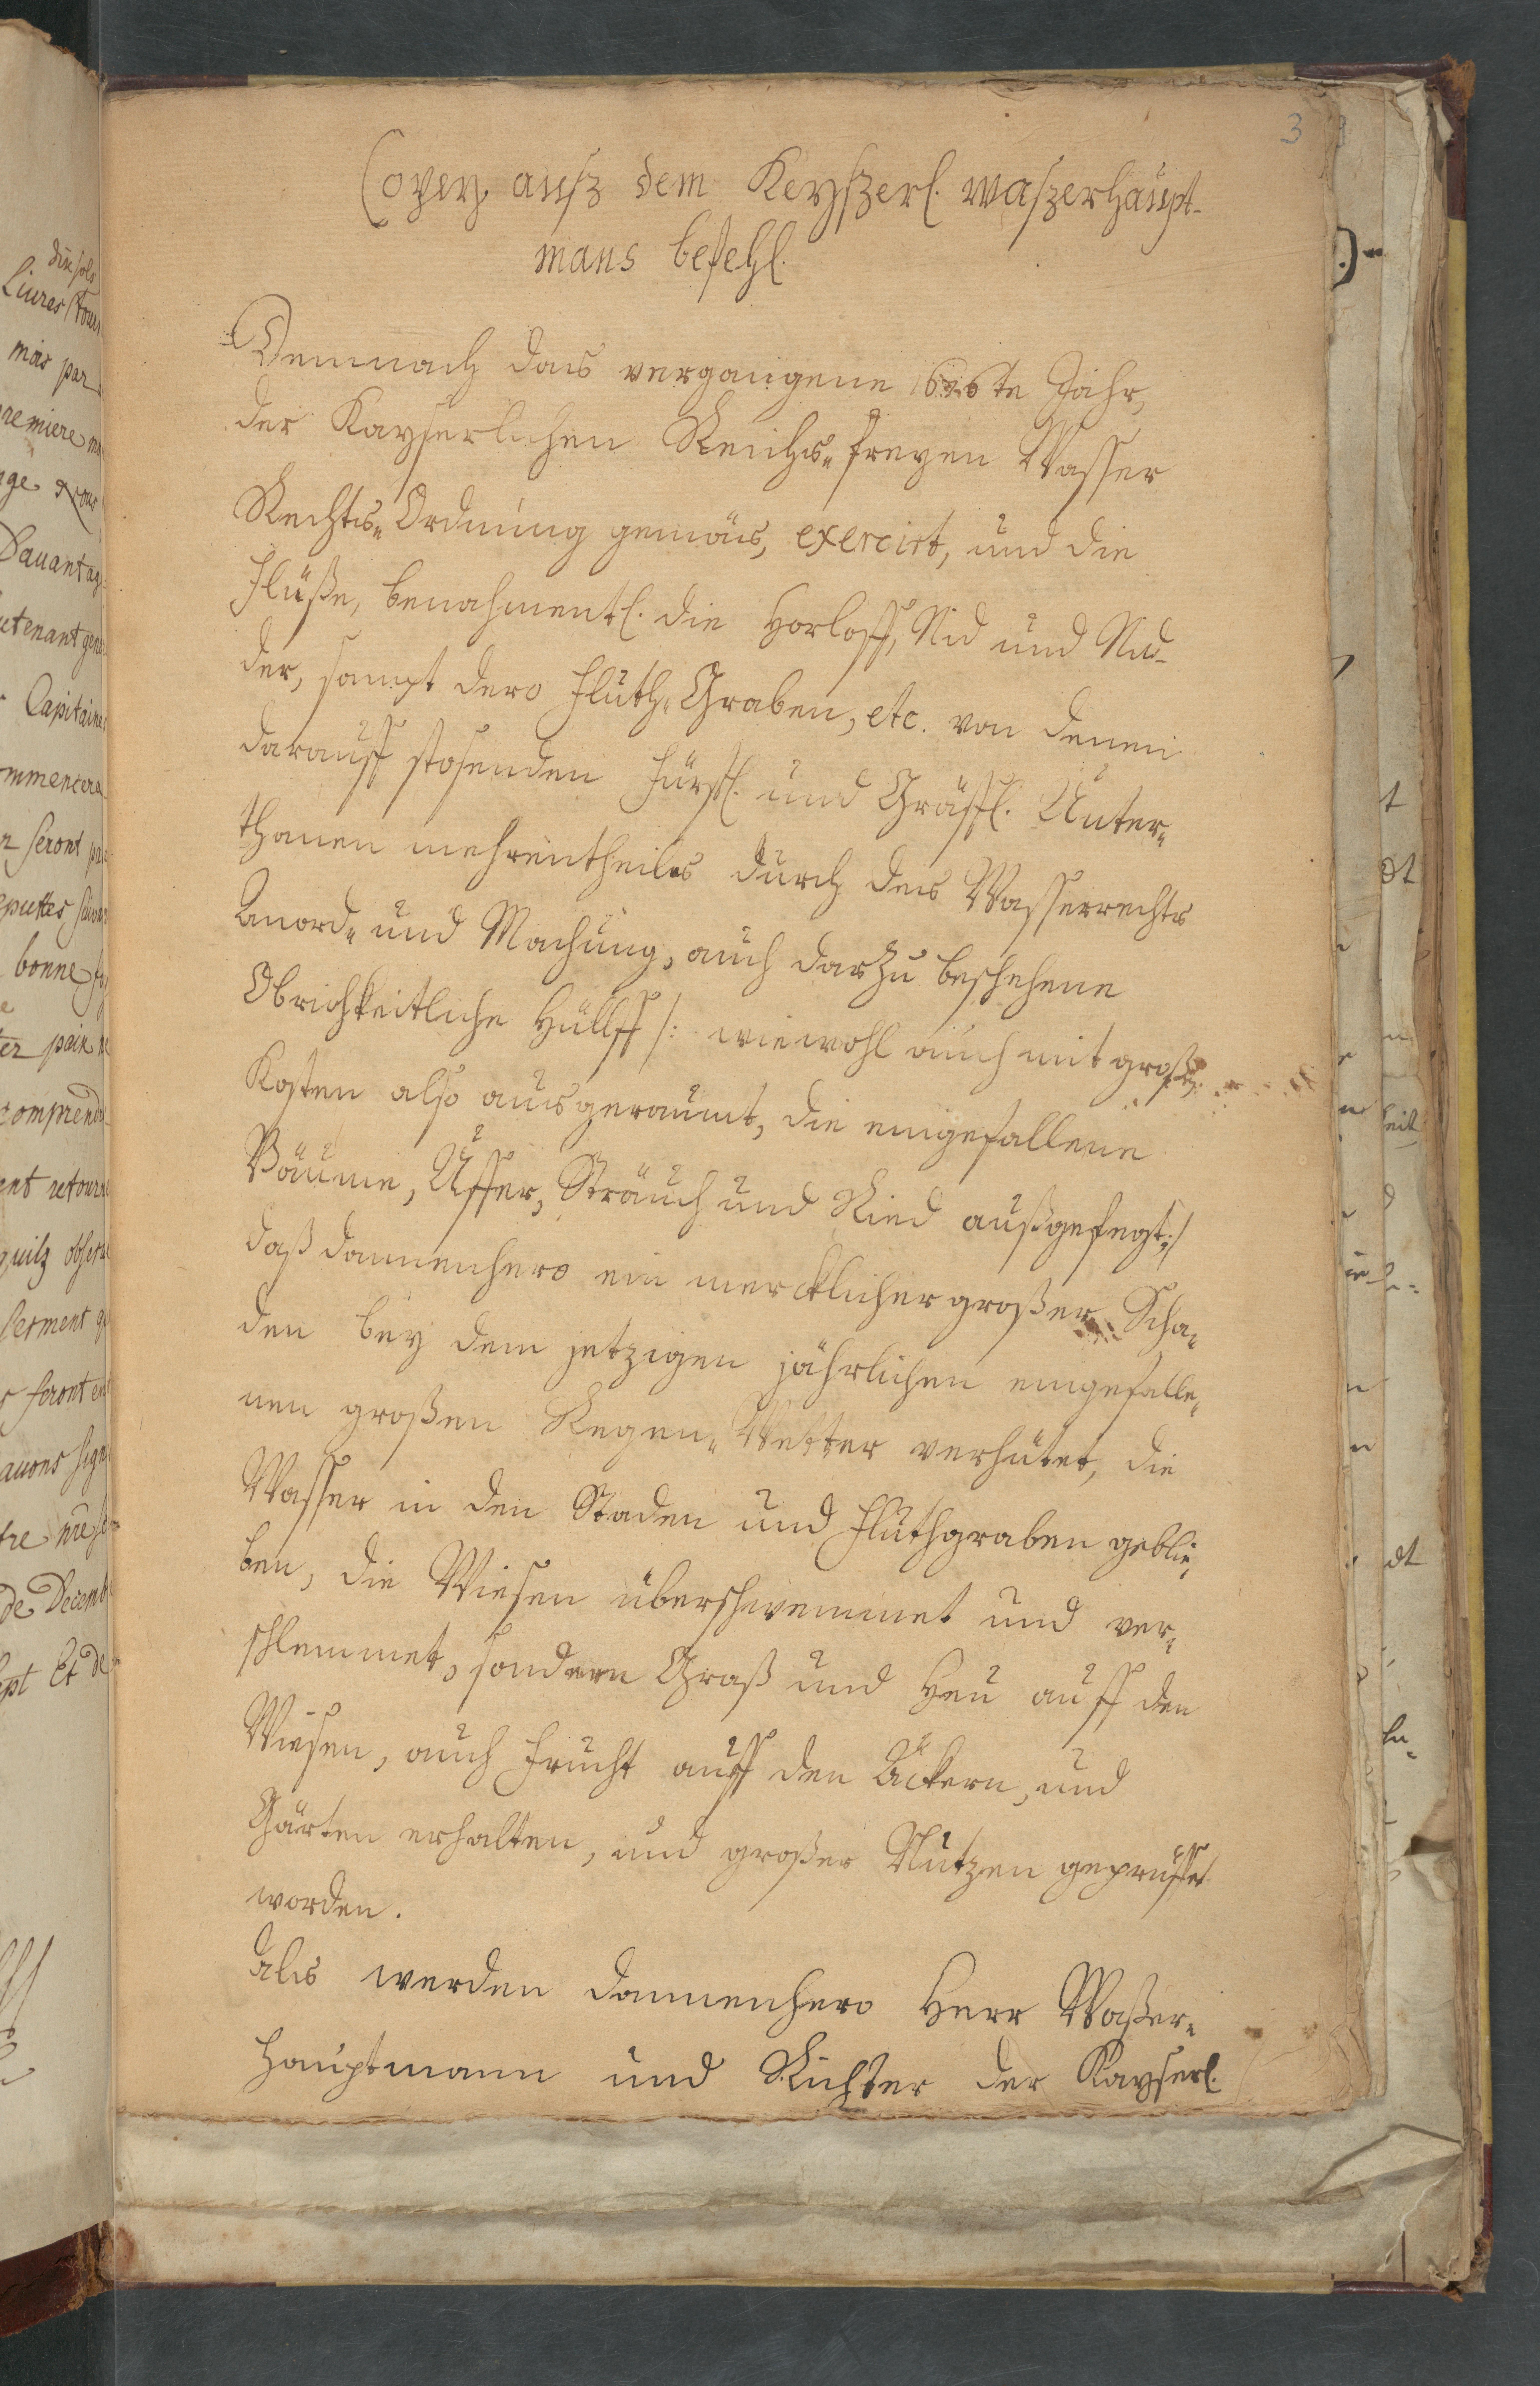 3
Copey ausz dem Keyszerl. waszerhaupt-
mans befehl.
Demnach das vergangene 1626te Jahr,
der Kayserlichen Reichs-freyen Wasser
Rechts-Ordnung gemäs, exercirt, und die
Flüße, benahmentl. die Horloff, Nid und Nid-
der, sampt dero Fluth-Graben, etc. von denen
darauff stosenden Fürstl. und Gräffl. Unter-
thanen mehrentheils durch des Wasserrechts
Anord- und Machung, auch darzu beschehene
Obrichkeitliche Hülff /: wiewohl auch mit groß.
Kosten also ausgeraumt, die eingefallene
Bäume, Uffer, Sträuch und Ried außgefegt :/
daß dannenhero ein mercklicher großer Scha-
den bey dem jetzigen jährlichen eingefalle-
nen großen Regen-Wetter verhütet, die
Wasser in den Staden und Fluthgraben geblie-
ben, die Wiesen überschwemmet und ver-
schlemmet, sondern Graß und Heu auff den
Wiesen, auch Frucht auff den Äckern, und
Gärten erhalten, und großer Nutzen geprüffet
worden.
Als werden dannenhero Herr Waßer-
hauptmann und Richter der Kayserl.
Liures
mois par
premiere
Dauantag
Lieutenant gen
Capitaine
commencera
seront
bonne
comprend
retourn
quilz obser
serment
seront
auons sign
de Decemb
Et de